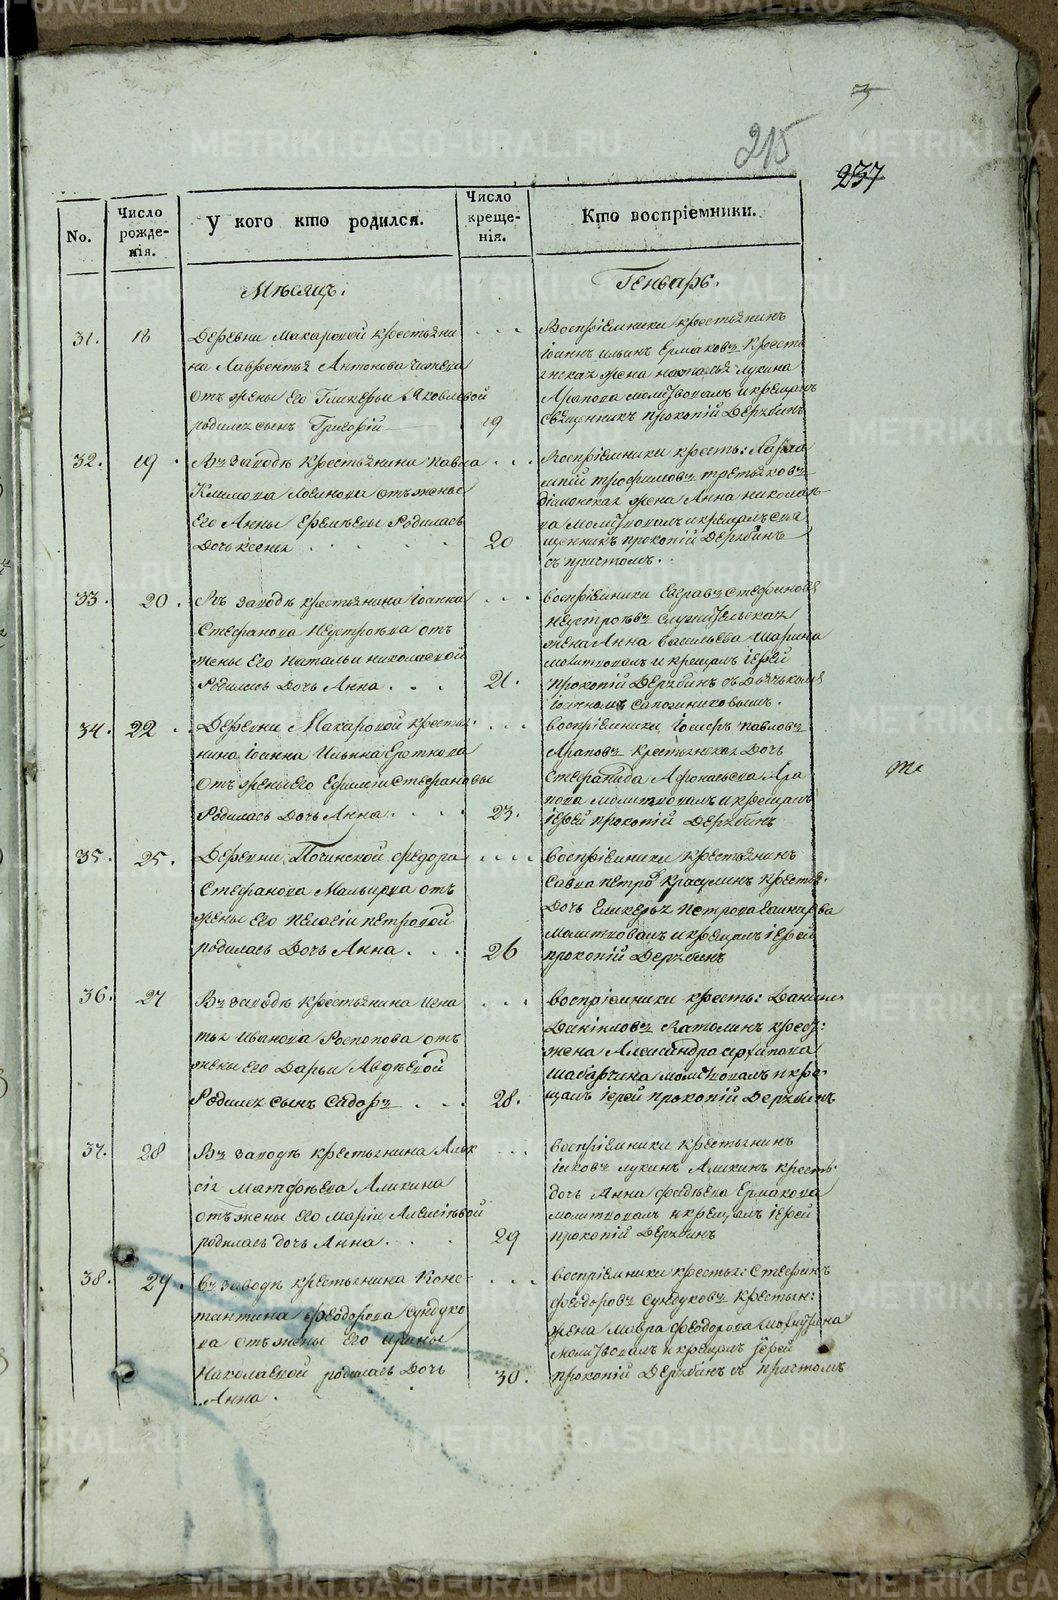 3
215
237
No.
Число рожде-нія.
У кого кто родился.
Число креще-нія.
Кто воспріемники.
Мѣсяцъ.
Генварь.
31.
18
Деревни Макаровой крестьяни
на Лаврентья Антонова
отъ жены его Гликерьи Яковлевой
родился сынъ Григорій
19
Воспріемники крестьянинъ
Іоаннъ Ильинъ Ермаковъ кресть
янская жена Наталья Лукина
Арапова молитвовалъ и крещалъ
священникъ Прокопій Дерябинъ
32.
19
Въ заводѣ крестьянина Павла
Климова Лосинова отъ жены
Его Анны Еремѣевы Родилась
Дочь Ксенья
20
Воспріемники кресть:
Трофимовъ Третьяковъ
жена Анна Николае-
ва молитвовалъ и крещалъ свя
щенникъ Прокопій Дерябинъ
съ причтомъ.
33.
20
Въ заводѣ крестьянина Іоанна
Стефанова Неустроева отъ
жены Его Натальи Николаевой
Родилась Дочь Анна
21.
Воспріемники Стефановъ
Неустроевъ служительская
жена Анна Васильева Шарина
молитвовалъ и крещалъ іерей
Прокопій Дерябинъ съ Дьячькомъ
Іоанномъ Сапожниковымъ.
34.
22
Деревни Макаровой кресть
нина Іоанна Ильина
отъ жены Его Ефиміи Стефановы
Родилась Дочь Анна
23.
воспріемники Іосифъ Павловъ
Араповъ крестьянская Дочь
Стефанида Афонасьева Ара
пова молитвовалъ и крещалъ
іерей Прокопій Дерябинъ
35.
25.
Деревни Починской Федора
Стефанова отъ
жены Его Пелагіи Петровой
родилась Дочь Анна
26
воспріемники крестьянинъ
Савва Петровъ Красулинъ крестья.
Дочь Гликерья Петрова
молитвовалъ и крещалъ іерей
Прокопій Дерябинъ
36.
27
Въ заводѣ крестьянина Игна
тья Иванова Роспопова отъ
жены Его Дарьи Авдѣевой
Родился сынъ Сидоръ
28.
воспріемники кресть: Данила
Даніиловъ Католинъ кресть:
жена Александра Архипова
Шабарчина молитвовалъ и кре-
щалъ іерей Прокопій Дерябинъ
37.
28
Въ заводѣ крестьянина Алек
сія Матфѣева Аликина
отъ жены его Маріи Алексіевой
родилась дочь Анна
29
воспріемники крестьянинъ
Іяковъ Лукинъ Аликинъ кресть:
дочь Анна Фадѣева Ермакова
молитвовалъ и крещалъ іерей
Прокопій Дерябинъ
38.
29.
Въ заводѣ крестьянина Конс-
тантина Феодорова Сундуко
ва отъ жены Его Ирины
Николаевой родилась Дочь
Анна
30.
воспріемники кресть: Стефанъ
Феодоровъ Сундуковъ крестьян:
жена Мавра Феодорова
молитвовалъ и крещалъ іерей
Прокопій Дерябинъ съ причтомъ
METRIKI.GASO-URAL.RU